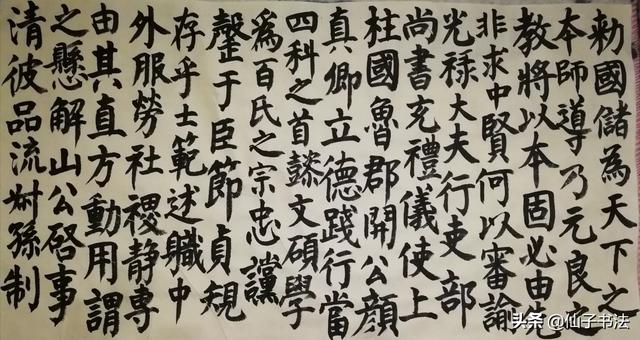 勑國儲為天下之
本師導乃元良之
教將以本固必由先
非求中賢何以審諭
光禄大夫行吏部
尚書充禮儀使上
柱國魯郡開公顏
真卿立德踐行當
四科之首懿文碩學
爲百氏之宗忠讜
罄于臣節貞規
存乎士範述職中
外服勞社稷静專
由其直方動用謂
之懸解山公啓事
清彼品流尗孫制
头条 @仙子书法